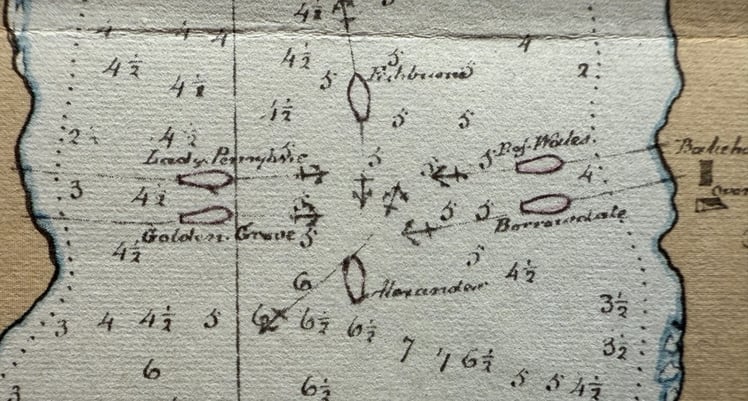 4½
4 4 4
4½ 5 4
4½ 5 Fishburne 2
4½
4½ 5 5
2 4½
Lady Pennyhn 5 5 P. of Wales
3 4½ 4
5 5 Borrowdale
Golden Grove 5
4½ 5
6 Alexander 4½
3½
3 4 4½ 5 6 6½ 6½
7 7 6½ 3½
6 5 5 4½
3 6½